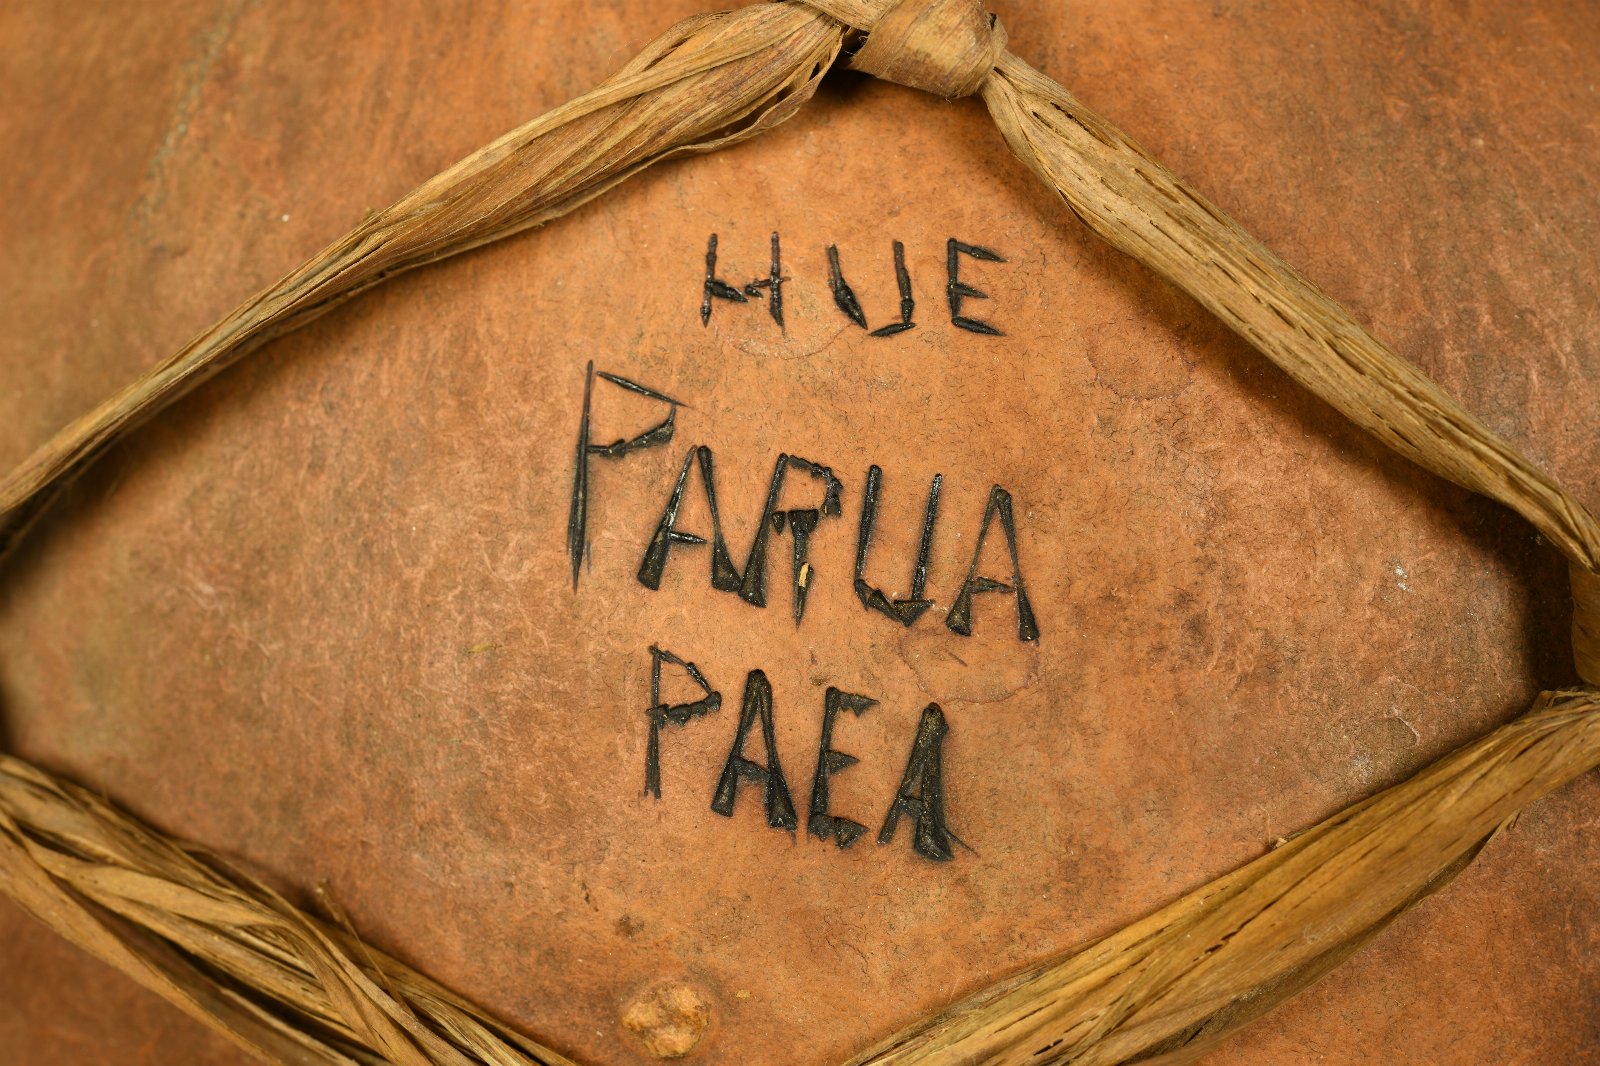 HUE
PARUA
PAEA